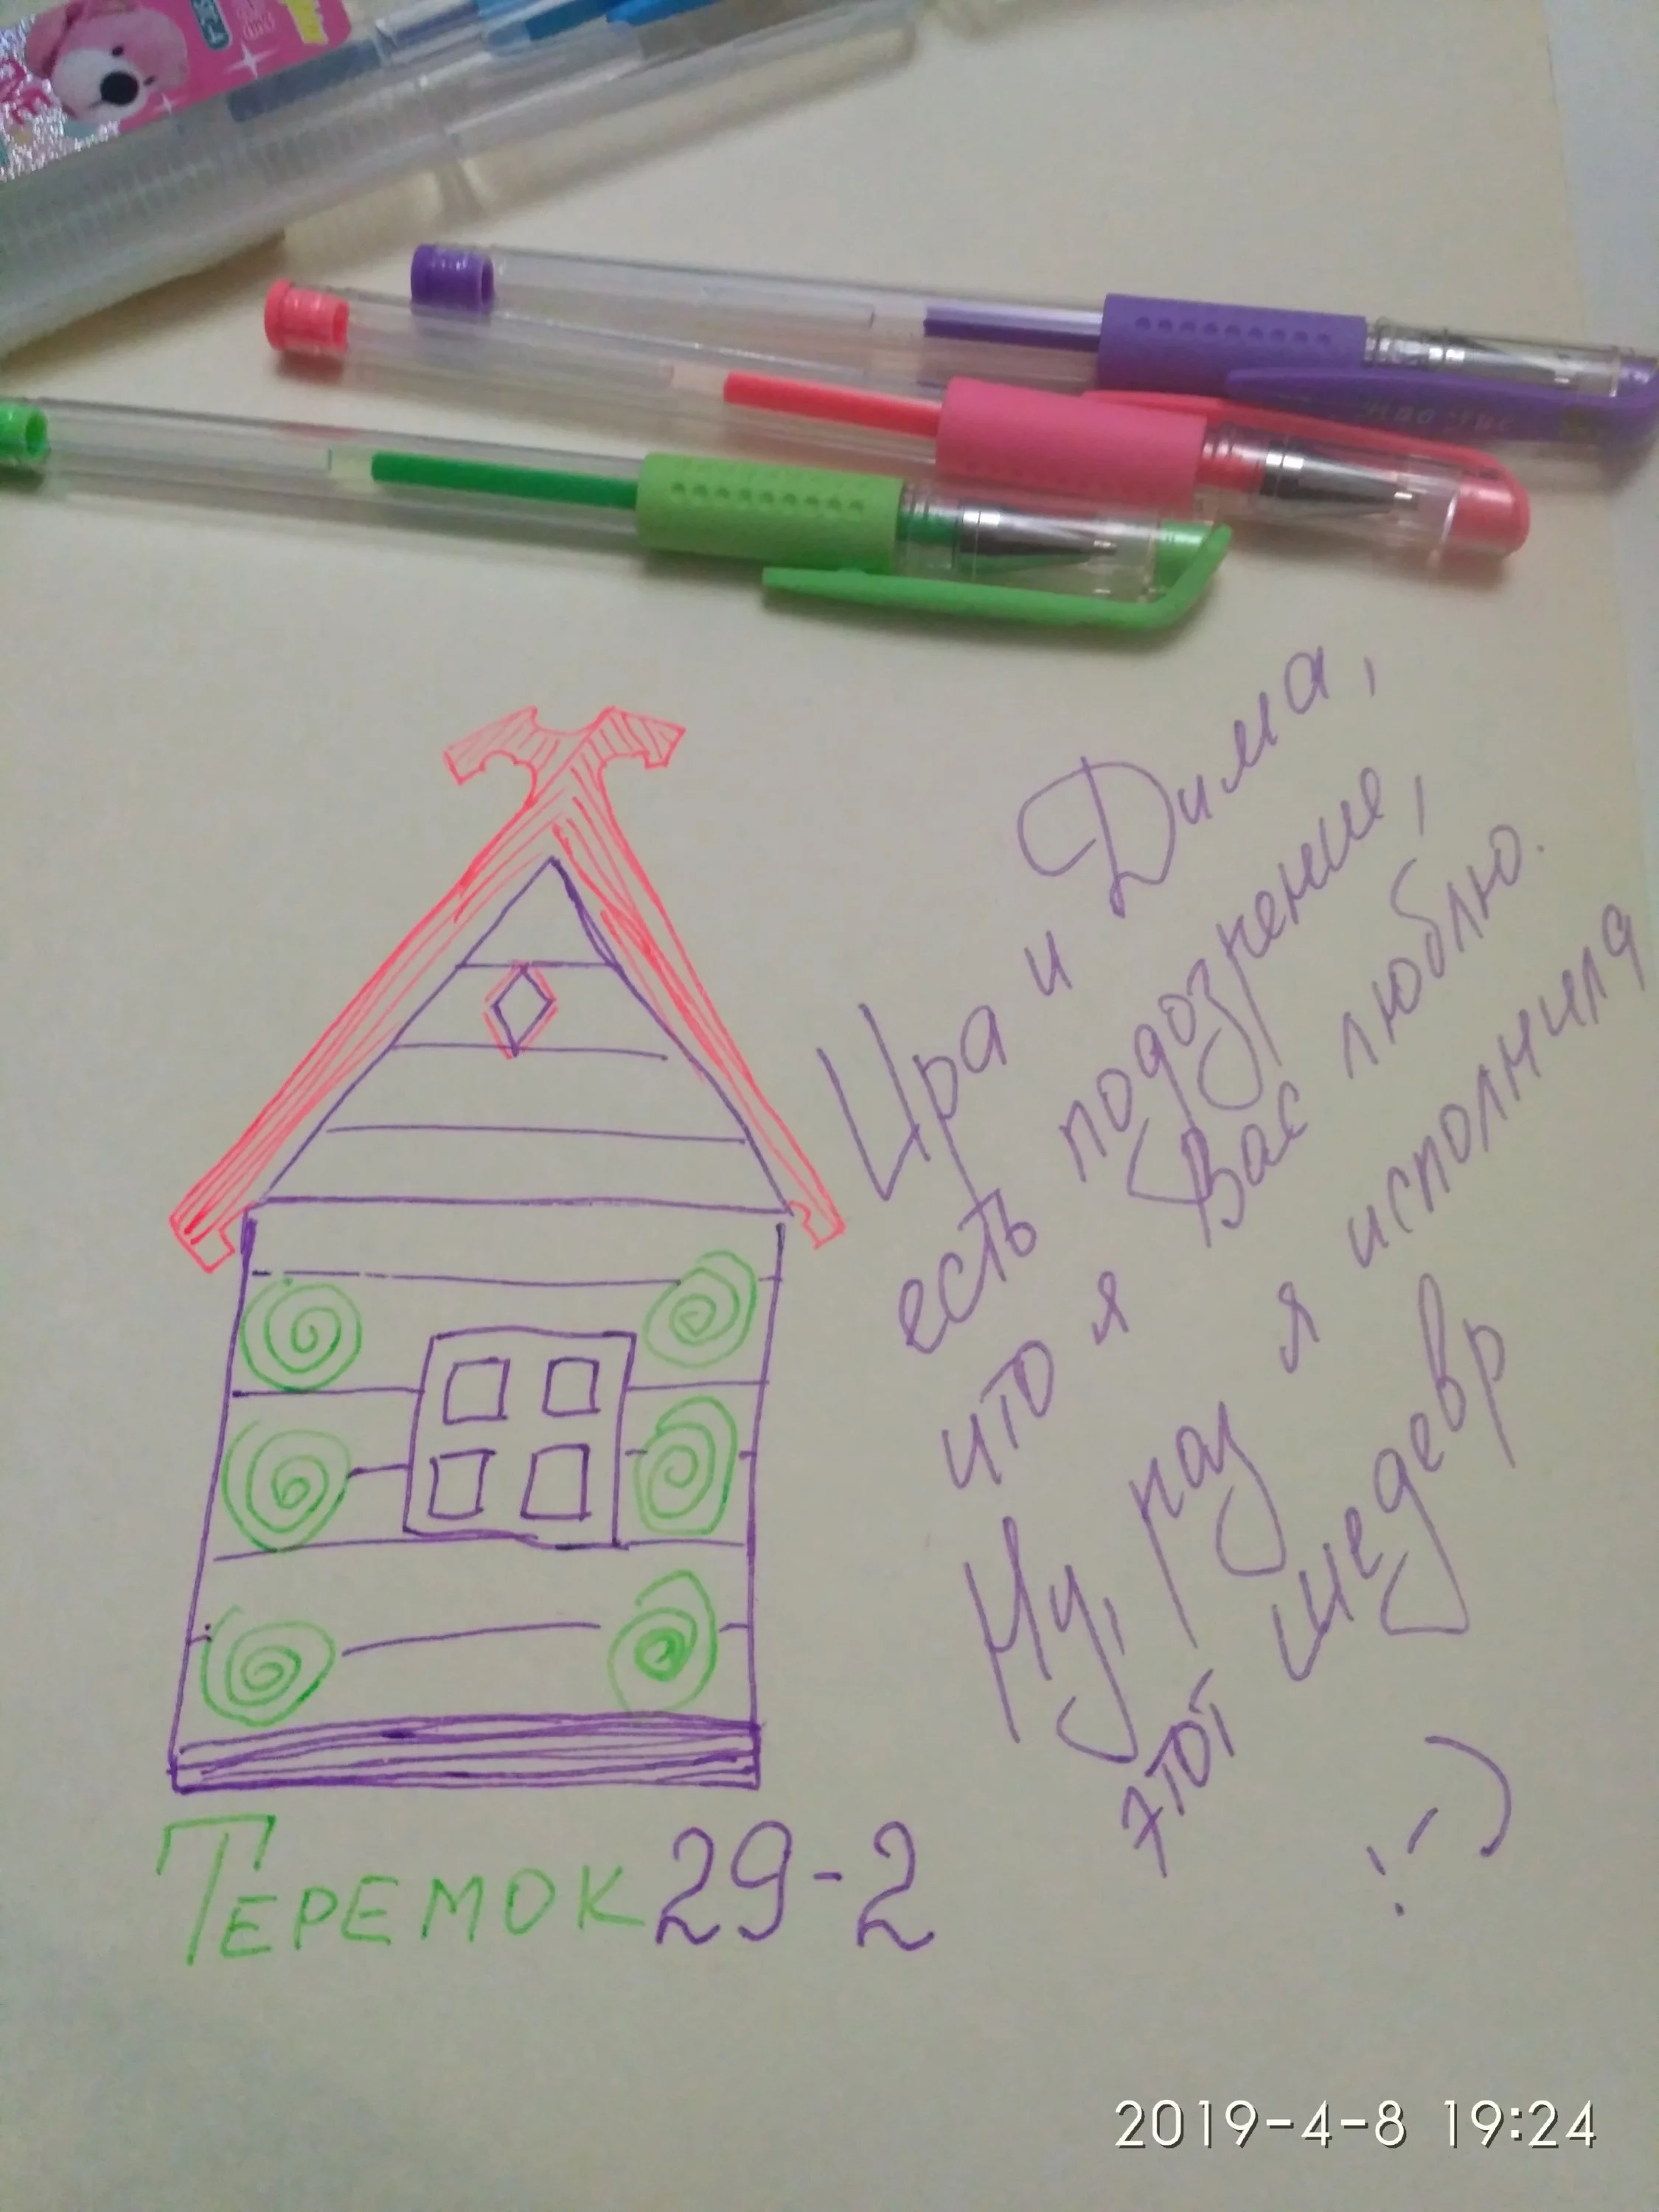 Ира и Дима,
есть подозрение,
что я Вас люблю.
Ну, раз я исполнила
этот шедевр
:-)
ТЕРЕМОК 29-2
2019-4-8 19:24